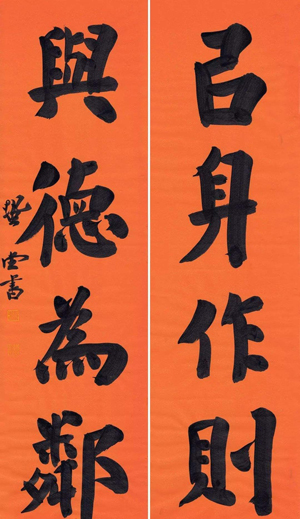 㠯身作則
與德為鄰
堂書